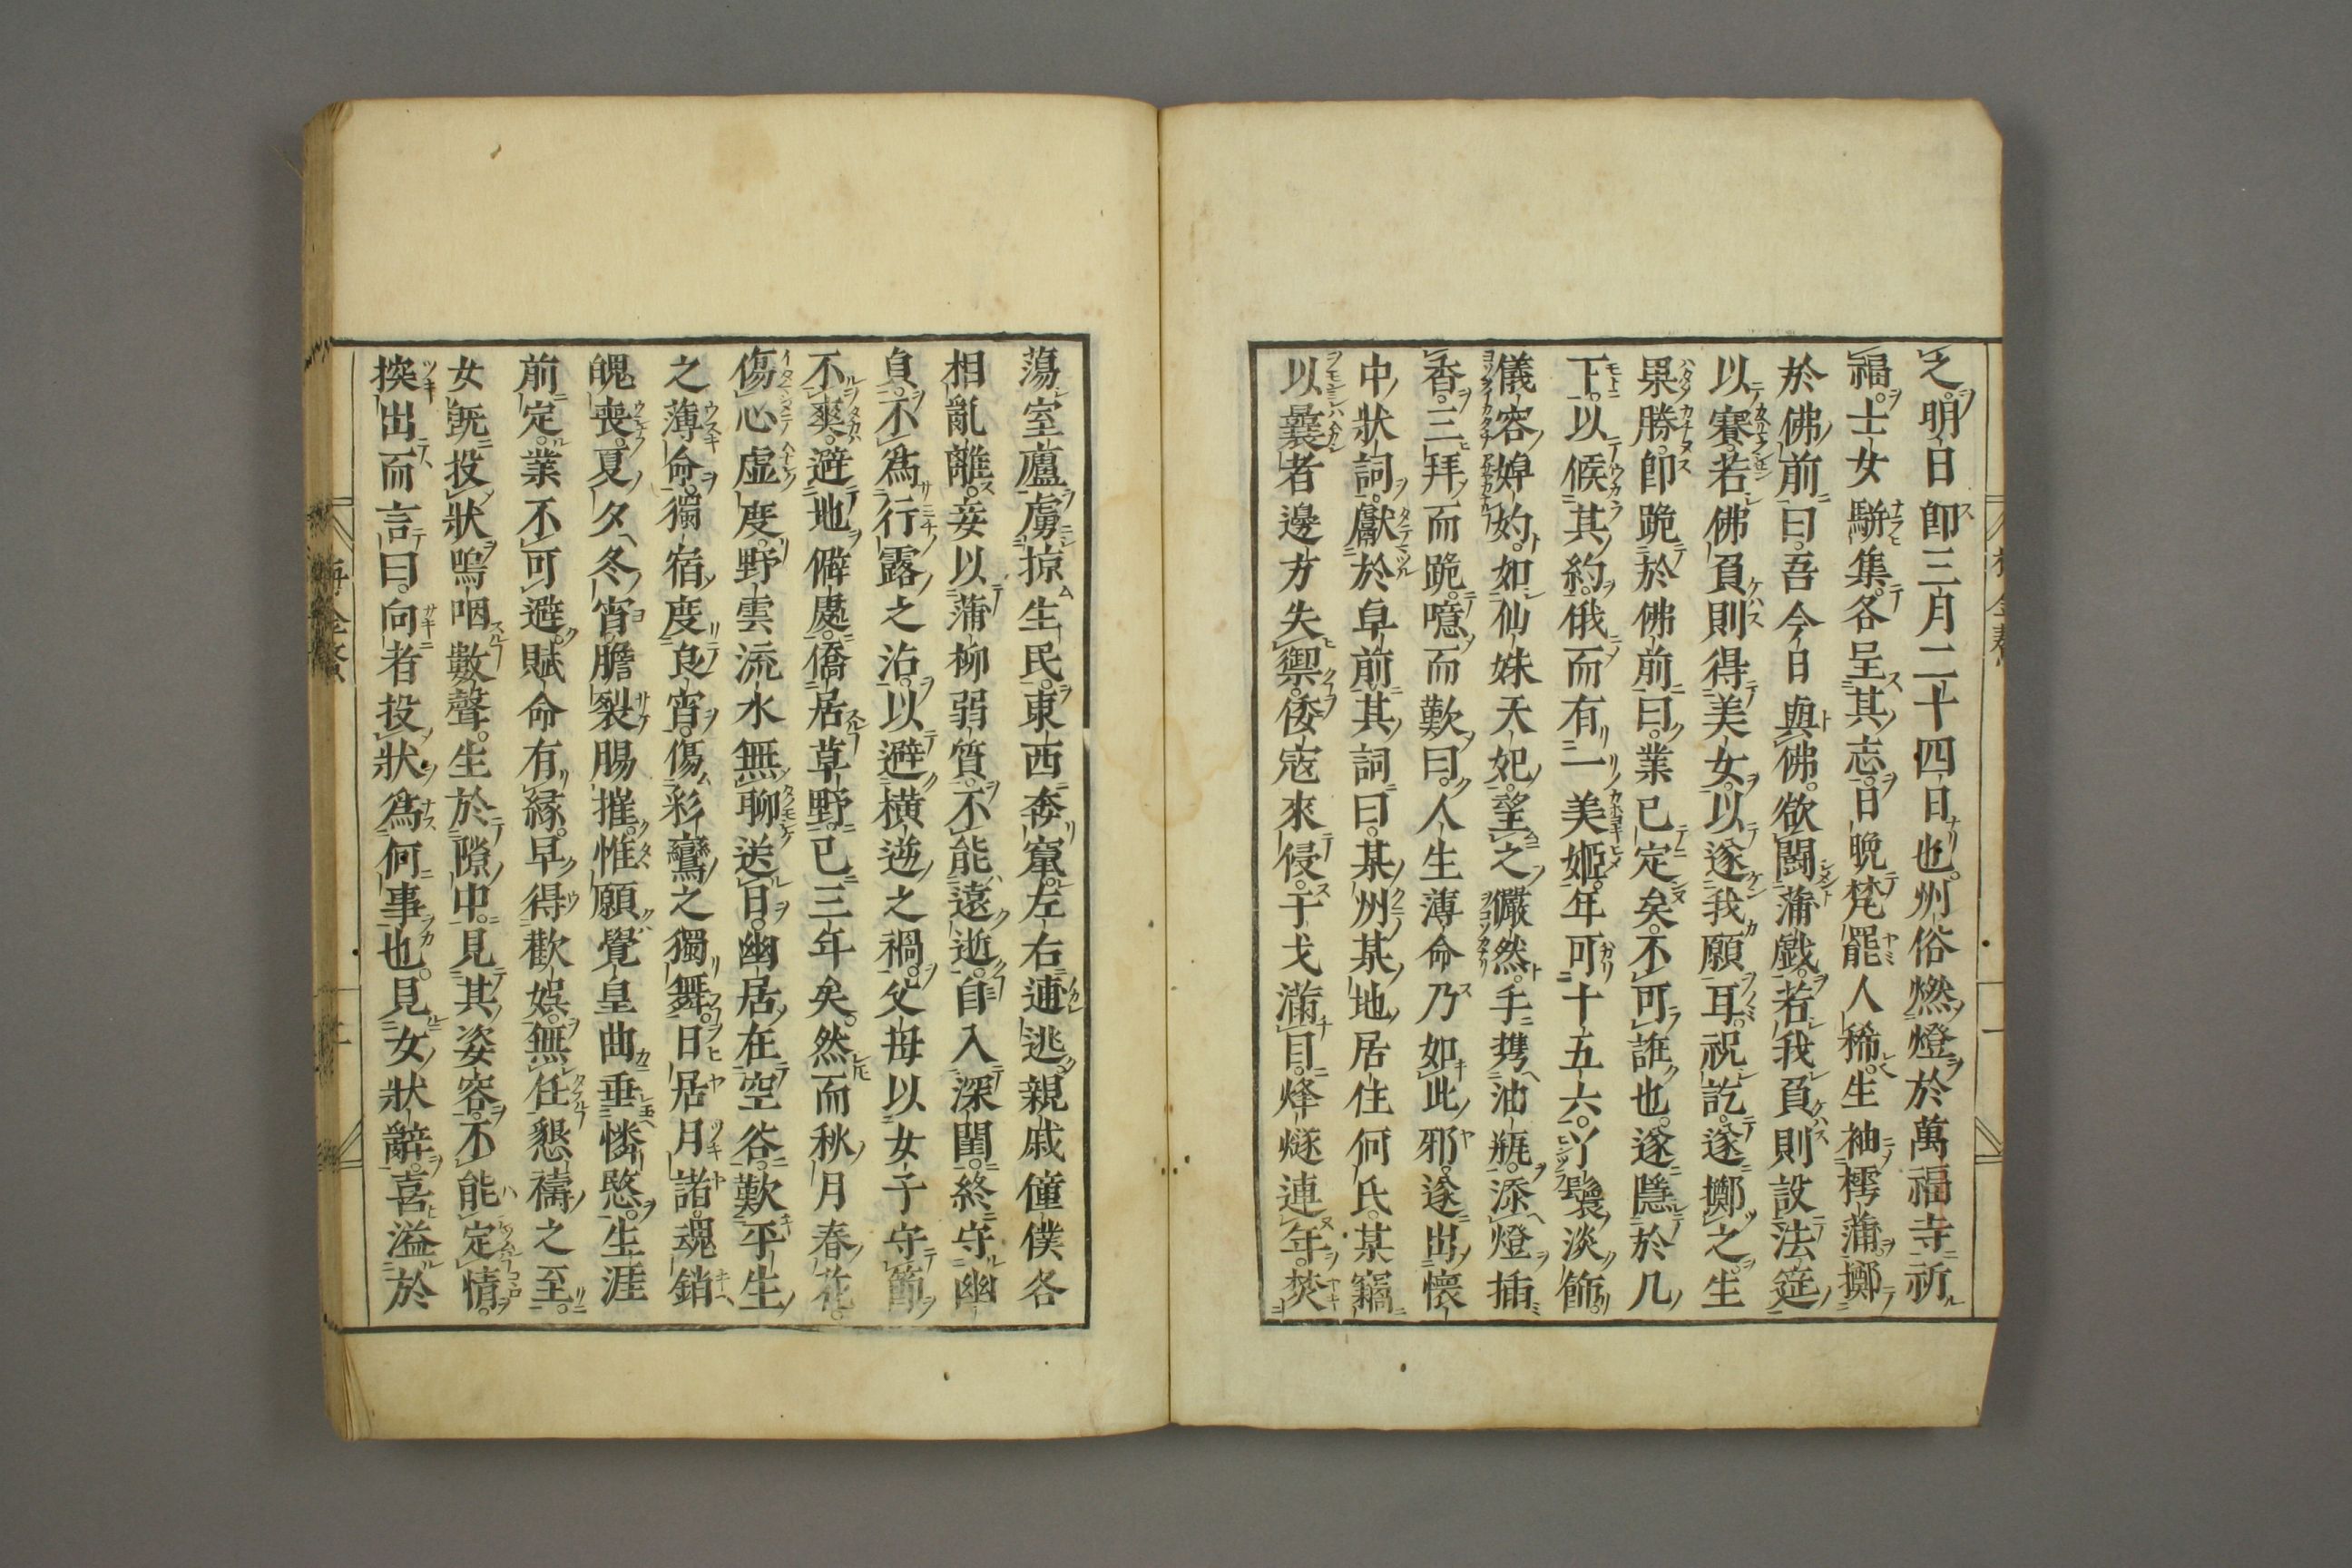 之。明日即三月二十四日也。州俗燃燈於萬福寺祈
福。士女駢集。各呈其志。日晚梵罷人稀。生袖樗蒲。擲
於佛前曰。吾今日與佛。欲鬪蒲戲。若我負則設法筵
以賽。若佛負則得美女。以遂我願耳。祝訖。遂擲之。生
果勝。即跪於佛前曰。業已定矣。不可誑也。遂隱於几
下。以候其約。俄而有一美姬。年可十五六。丫鬟淡飾。
儀容婥妁。如仙姝天妃。望之儼然。手携油瓶。添燈插
香。三拜而跪。噫而歎曰。人生薄命乃如此邪。遂出懷
中狀詞。獻於卓前。其詞曰。某州某地居住何氏。某竊
以曩者邊方失禦。倭寇來侵。干戈滿目。烽燧連年。焚
蕩室廬。虜掠生民。東西奔竄。左右逋逃。親戚僮僕各
相亂離。妾以蒲柳弱質。不能遠逝。自入深閨。終守幽
貞。不爲行露之沾。以避橫逆之禍。父母以女子守節
不爽。避地僻處。僑居草野。已三年矣。然而秋月春花。
傷心虛度。野雲流水無聊送日。幽居在空谷。歎平生
之薄命。獨宿度良宵。傷彩鸞之獨舞。日居月諸。魂銷
魄喪。夏夕冬宵。膽裂腸摧。惟願覺皇曲垂憐愍。生涯
前定。業不可避。賦命有緣。早得歡娛。無任懇禱之至。
女既投狀。嗚咽數聲。生於隙中。見其姿容。不能定情。
揬出而言曰。向者投狀。爲何事也。見女狀辭。喜溢於
梅金鰲